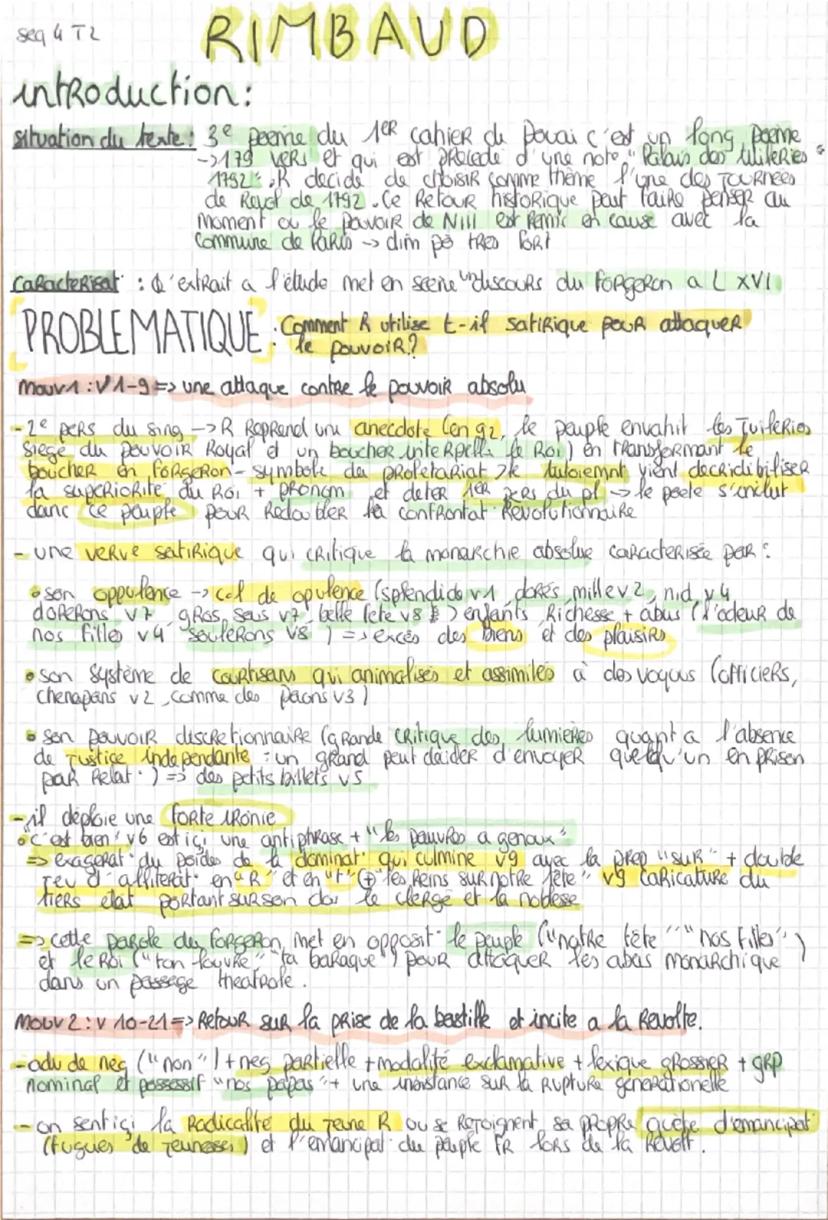 seq 4 T2
RIMBAUD
introduction:
situation du texte: 3e poeme du 1ER cahier de Douai c'est un long poeme
->179 vers et qui est precede d'une note "Palais des tuileries
1792". R decide de choisir comme thème l'une des Journees
de Revol de 1792. Ce Retour historique peut faire penser au
moment ou le pouvoir de NIII est remis en cause avec la
Commune de PaRis -> dim po tres fort
caracterisat° : l'extrait a l'étude met en scene un discours du forgeron a L XVI
PROBLEMATIQUE : Comment R utilise t-il satirique pour attaquer
le pouvoir?
Mouv 1 : V1-9 => une attaque contre le pouvoir absolu
- 2e pers du sing -> R Reprend une anecdote (en 92, le peuple envahit les Tuileries
siege du pouvoir Royal et un boucher interpelle le Roi) en transformant le
boucher en forgeron - symbole du proletariat le tutoiemnt vient decridibiliser
la superiorité du Roi + pronom et deter 1ER pers du pl -> le poete s'inclut
dans ce peuple pour Redoubler la confrontat° Revolutionnaire
- une verve satirique qui critique la monarchie absolue caracterisée par :
• son oppulence -> cel de opulence (splendide v1, dorés, mille v2, nid v4
dorerons v7, gros sous v7, belle fete v8) enfants Richesse + abus (l'odeur de
nos filles v4 soulerons v8) => excès des biens et des plaisirs
• son système de courtisans qui animalisés et assimilés à des voyous (officiers,
chenapans v2, comme des paons v3)
• son pouvoir discretionnaire (grande critique des lumières quant a l'absence
de justice independante : un grand peut decider d'envoyer quelqu'un en prison
par Relat°) => des petits billets v5
- il déploie une forte ironie
• "c'est bien" v6 est ici une antiphrase + "les pauvres a genoux"
=> exagerat° du poids de la dominat° qui culmine v9 avec la prep "sur" + double
jeu d'alliterat° en "R" et en "t" (+ "les Reins sur notre tête" v9 caricature du
tiers etat portant sur son dos le clergé et la noblesse
=> cette parole du forgeron met en opposit° le peuple ("notre tête" "nos filles")
et le Roi ("ton louvre" "ta baraque") pour attaquer les abus monarchique
dans un passage theatrale.
Mouv 2 : v 10-21 => Retour sur la prise de la bastille et incite a la Revolte.
- adv de neg ("non") + neg partielle + modalité exclamative + lexique grossier + grp
nominal et possessif "nos papas" + une insistance sur la rupture generationelle
- on sent ici la Radicalité du jeune R ou se rejoignent sa propre quête d'emancipat°
(fugues de jeunesse) et l'emancipat° du peuple FR lors de la Revolt°.